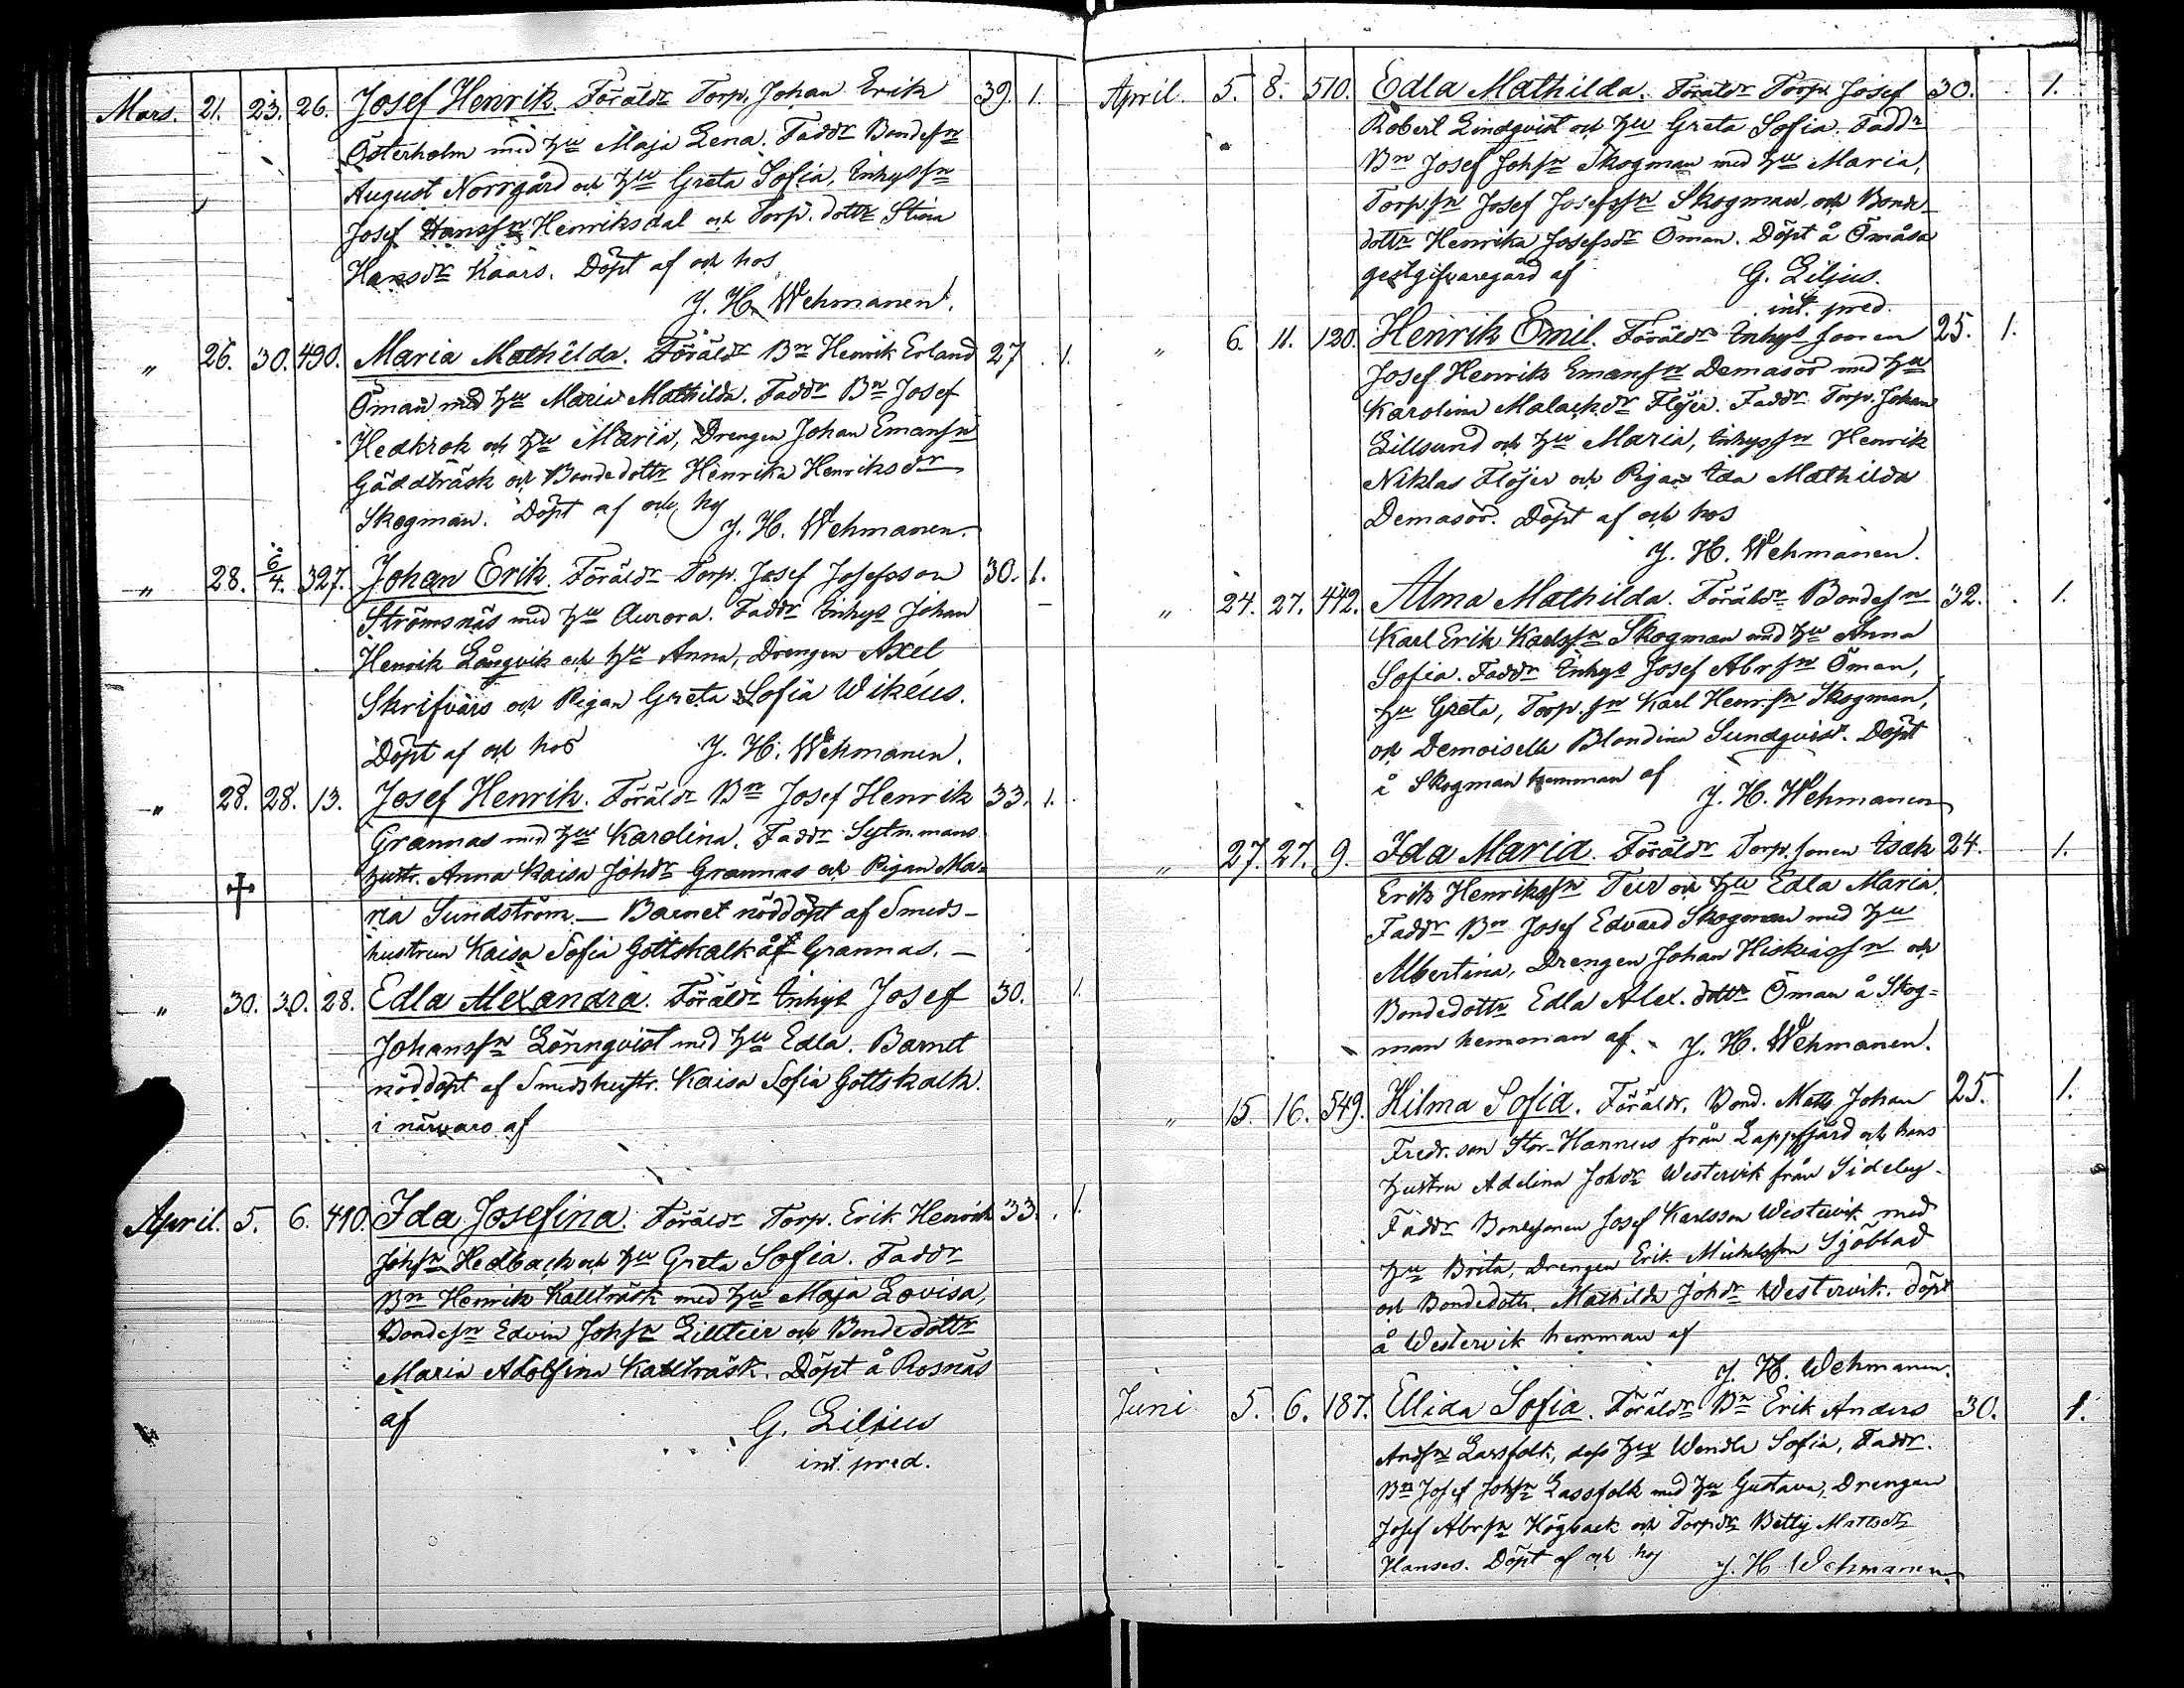 Mars. 21. 23. 26. Josef Henrik. Föräldr Torp. Johan Erik 39. 1.
Österholm med hu Maja Lena. Faddr Bondesn
August Norrgård och hu Greta Sofia, Inhyssn
Josef Hanssn Henriksdal och Torp. dottr Stina
Hansdr Kaars. Döpt af och hos
J. H. Wehmanen.
" 26. 30. 490. Maria Mathilda. Föräldr Bn Henrik Erland 27. 1.
Öman med hu Maria Mathilda. Faddr Bn Josef
Hedkrok och hu Maria, Drengen Johan Emansn
Gäddträsk och Bondedottr Henrika Henriksdr
Skogman. Döpt af och hos
J. H. Wehmanen.
" 28. 6/4. 327. Johan Erik. Föräldr Torp. Josef Josefsson 30. 1.
Strömsnäs med hu Aurora. Faddr Inhys Johan
Henrik Långvik och hu Anna, Drengen Axel
Skrifvars och Pigan Greta Sofia Wikeus.
Döpt af och hos J. H. Wehmanen.
" 28. 28. 13. Josef Henrik. Föräldr Bn Josef Henrik 33. 1.
Grannas med hu Karolina. Faddr Sytn. mans
hustr. Anna Kaisa Johdr Grannas och Pigan Ma-
ria Sundström. — Barnet nöddöpt af Smeds-
hustrun Kaisa Sofia Gottskalk åf Grannas. —
" 30. 30. 28. Edla Alexandra. Föräldr Inhys Josef 30. 1.
Johanssn Lönnqvist med hu Edla. Barnet
nöddöpt af Smedshustr. Kaisa Sofia Gottskalk
i närvaro af
April. 5. 6. 410. Ida Josefina. Föräldr Torp. Erik Henrik 33. 1.
Johsn Hedback och hu Greta Sofia. Faddr
Bn Henrik Kallträsk med hu Maja Lovisa,
Bondesn Edvin Johsn Lillteir och Bondedottr
Maria Adolfina Kallträsk. Döpt å Rosnäs
af G. Lilius
int. pred.
April. 5. 8. 510. Edla Mathilda. Föräldr Torp. Josef 30. 1.
Robert Lindqvist och hu Greta Sofia. Faddr
Bn Josef Johsn Skogman med hu Maria,
Torp.sn Josef Josefssn Skogman, och Bonde-
dottr Henrika Josefsdr Öman. Döpt å Ömåsa
gestgifvaregård af G. Lilius.
int. pred.
" 6. 11. 120. Henrik Emil. Föräldr Inhys sonen 25. 1.
Josef Henrik Emansn Demasör med hu
Karolina Malach.dr Flöjer. Faddr Torp. Johan
Lillsund och hu Maria, Inhyssn Henrik
Niklas Flöjer och Pigan Ida Mathilda
Demasör. Döpt af och hos
J. H. Wehmanen.
" 24. 27. 442. Alma Mathilda. Föräldr Bondesn 32. 1.
Karl Erik Karlssn Skogman med hu Anna
Sofia. Faddr Inhys Josef Abrsn Öman,
hu Greta, Torp.sn Karl Henr.sn Skogman,
och Demoiselle Blondina Sundqvist. Döpt
å Skogman hemman af
J. H. Wehmanen
" 27. 27. 9. Ida Maria. Föräldr Torp.sonen Isak 24. 1.
Erik Henrikssn Teir och hu Edla Maria.
Faddr Bn Josef Edvard Skogman med hu
Albertina, Drengen Johan Hiskiassn och
Bondedottr Edla Alex. dottr Öman å Skog-
man hemman af. J. H. Wehmanen.
" 15. 16. 549. Hilma Sofia. Föräldr. Bond. Matts Johan 25. 1.
Fredr. son Stor-Hannus från Lappfjärd och hans
hustru Adelina Johdr Westervik från Sideby.
Faddr Bondesonen Josef Karlsson Westervik med
hu Brita, Drengen Erik Michelsson Sjöblad
och Bondedottr. Mathilda Johdr Westervik. Döpt
å Westervik hemman af
J. H. Wehmanen.
Juni 5. 6. 187. Ellida Sofia. Föräldr Bn Erik Anders 30. 1.
Andsn Larsfolk, dess hu Wendla Sofia, Faddr.
Bn Josef Johsn Lassfolk med hu Gustava, Drengen
Josef Abrsn Högback och Torpdr Betty Mattsdr
Hanses. Döpt af och hos J. H. Wehmanen.